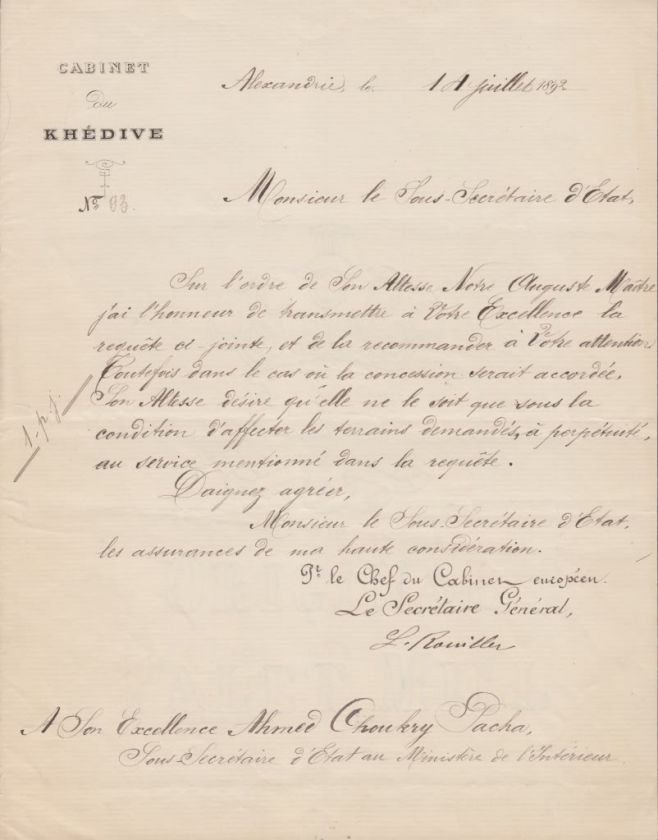 CABINET
du
KHÉDIVE
Nº 93.
Alexandrie, le 14 juillet 1892
Monsieur le Sous-Secrétaire d'Etat,
Sur l'ordre de Son Altesse Notre Auguste Maître
j'ai l'honneur de transmettre à Votre Excellence la
requête ci-jointe, et de la recommander à Votre attention
Toutefois dans le cas où la concession serait accordée,
Son Altesse désire qu'elle ne le soit que sous la
condition d'affecter les terrains demandés, à perpétuité,
au service mentionné dans la requête.
1. p. j.
Daignez agréer,
Monsieur le Sous-Secrétaire d'Etat,
les assurances de ma haute considération.
Pr. le Chef du Cabinet européen.
Le Secrétaire Général,
L. Rouiller
A Son Excellence Ahmed Choukry Pacha,
Sous-Secrétaire d'Etat au Ministère de l'Intérieur